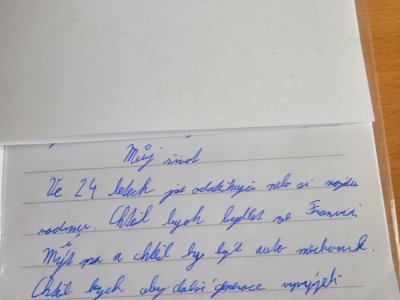 Můj život
Ve 24 letech se odstěhuji nebo si najdu
rodinu. Chtěl bych bydlet ve Francii
Mýt psa a chtěl by být auto mechanik.
Chtěl bych aby další generace vyvýjeti